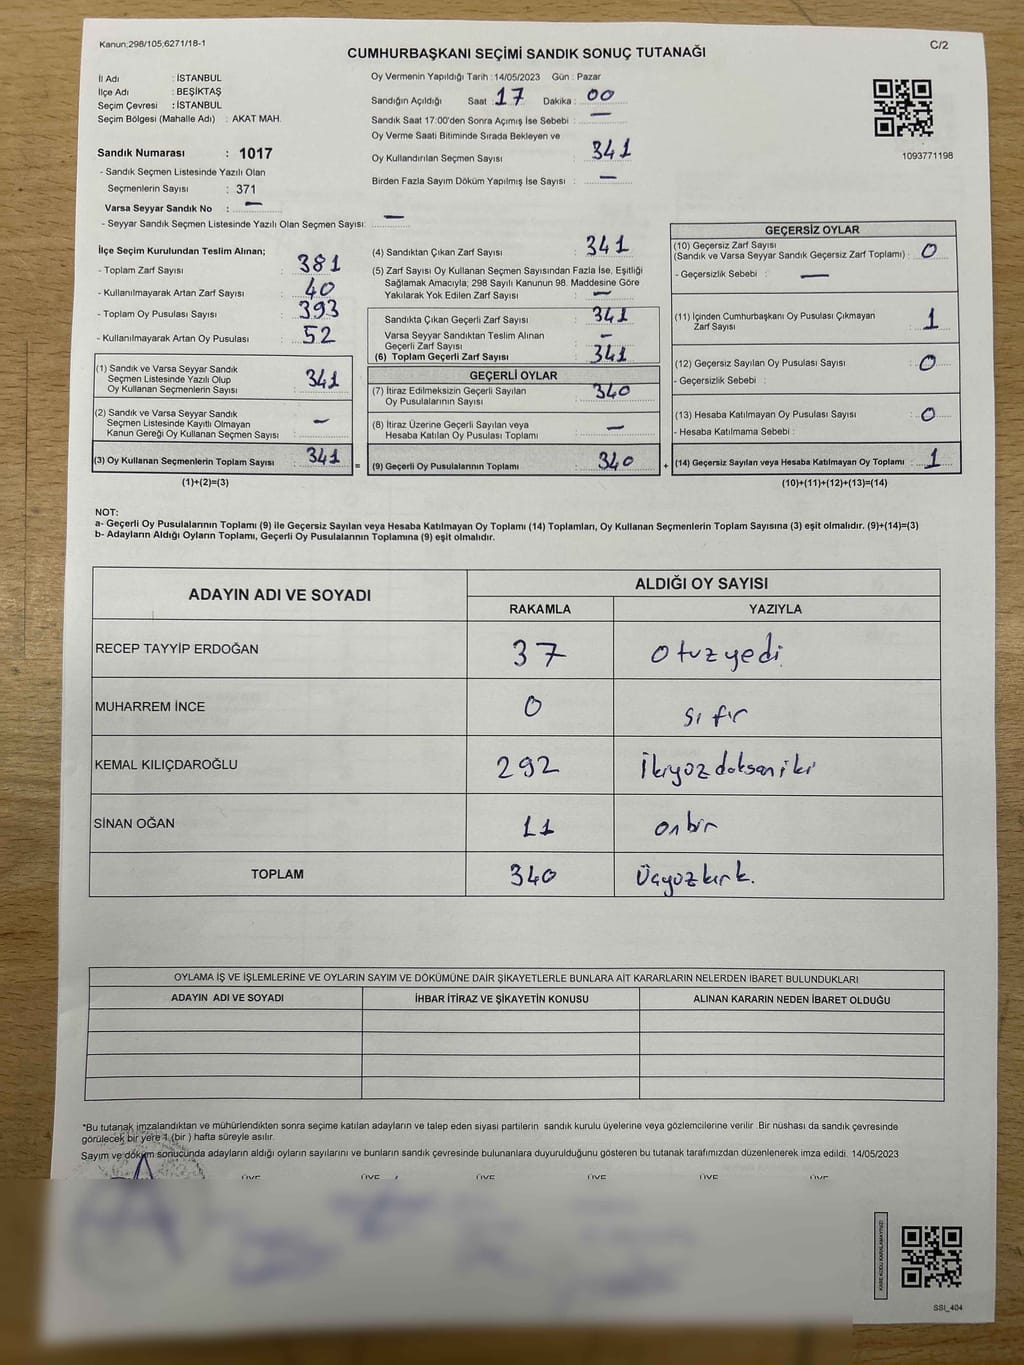 Kanun;298/105;6271/18-1
C/2
CUMHURBAŞKANI SEÇİMİ SANDIK SONUÇ TUTANAĞI
İl Adı : İSTANBUL
İlçe Adı : BEŞİKTAŞ
Seçim Çevresi : İSTANBUL
Seçim Bölgesi (Mahalle Adı) : AKAT MAH.
Sandık Numarası : 1017
- Sandık Seçmen Listesinde Yazılı Olan
Seçmenlerin Sayısı : 371
Varsa Seyyar Sandık No : —
- Seyyar Sandık Seçmen Listesinde Yazılı Olan Seçmen Sayısı: —
Oy Vermenin Yapıldığı Tarih : 14/05/2023 Gün : Pazar
Sandığın Açıldığı Saat : 17 Dakika : 00
Sandık Saat 17:00'den Sonra Açımış İse Sebebi : —
Oy Verme Saati Bitiminde Sırada Bekleyen ve
Oy Kullandırılan Seçmen Sayısı : 341
Birden Fazla Sayım Döküm Yapılmış İse Sayısı : —
1093771198
İlçe Seçim Kurulundan Teslim Alınan;
- Toplam Zarf Sayısı : 381
- Kullanılmayarak Artan Zarf Sayısı : 40
- Toplam Oy Pusulası Sayısı : 393
- Kullanılmayarak Artan Oy Pusulası : 52
(1) Sandık ve Varsa Seyyar Sandık
Seçmen Listesinde Yazılı Olup
Oy Kullanan Seçmenlerin Sayısı : 341
(2) Sandık ve Varsa Seyyar Sandık
Seçmen Listesinde Kayıtlı Olmayan
Kanun Gereği Oy Kullanan Seçmen Sayısı : —
(3) Oy Kullanan Seçmenlerin Toplam Sayısı : 341
(1)+(2)=(3)
(4) Sandıktan Çıkan Zarf Sayısı : 341
(5) Zarf Sayısı Oy Kullanan Seçmen Sayısından Fazla İse, Eşitliği
Sağlamak Amacıyla; 298 Sayılı Kanunun 98. Maddesine Göre
Yakılarak Yok Edilen Zarf Sayısı : —
Sandıkta Çıkan Geçerli Zarf Sayısı : 341
Varsa Seyyar Sandıktan Teslim Alınan
Geçerli Zarf Sayısı : —
(6) Toplam Geçerli Zarf Sayısı : 341
GEÇERLİ OYLAR
(7) İtiraz Edilmeksizin Geçerli Sayılan
Oy Pusulalarının Sayısı : 340
(8) İtiraz Üzerine Geçerli Sayılan veya
Hesaba Katılan Oy Pusulası Toplamı : —
= (9) Geçerli Oy Pusulalarının Toplamı : 340 +
GEÇERSİZ OYLAR
(10) Geçersiz Zarf Sayısı
(Sandık ve Varsa Seyyar Sandık Geçersiz Zarf Toplamı) : 0
- Geçersizlik Sebebi : —
(11) İçinden Cumhurbaşkanı Oy Pusulası Çıkmayan
Zarf Sayısı : 1
(12) Geçersiz Sayılan Oy Pusulası Sayısı : 0
- Geçersizlik Sebebi :
(13) Hesaba Katılmayan Oy Pusulası Sayısı : 0
- Hesaba Katılmama Sebebi :
(14) Geçersiz Sayılan veya Hesaba Katılmayan Oy Toplamı : 1
(10)+(11)+(12)+(13)=(14)
NOT:
a- Geçerli Oy Pusulalarının Toplamı (9) ile Geçersiz Sayılan veya Hesaba Katılmayan Oy Toplamı (14) Toplamları, Oy Kullanan Seçmenlerin Toplam Sayısına (3) eşit olmalıdır. (9)+(14)=(3)
b- Adayların Aldığı Oyların Toplamı, Geçerli Oy Pusulalarının Toplamına (9) eşit olmalıdır.
ADAYIN ADI VE SOYADI
ALDIĞI OY SAYISI
RAKAMLA YAZIYLA
RECEP TAYYİP ERDOĞAN 37 otuzyedi
MUHARREM İNCE 0 sıfır
KEMAL KILIÇDAROĞLU 292 İkiyüzdoksaniki
SİNAN OĞAN 11 onbir
TOPLAM 340 Üçyüzkırk.
OYLAMA İŞ VE İŞLEMLERİNE VE OYLARIN SAYIM VE DÖKÜMÜNE DAİR ŞİKAYETLERLE BUNLARA AİT KARARLARIN NELERDEN İBARET BULUNDUKLARI
ADAYIN ADI VE SOYADI İHBAR İTİRAZ VE ŞİKAYETİN KONUSU ALINAN KARARIN NEDEN İBARET OLDUĞU
*Bu tutanak imzalandıktan ve mühürlendikten sonra seçime katılan adayların ve talep eden siyasi partilerin sandık kurulu üyelerine veya gözlemcilerine verilir. Bir nüshası da sandık çevresinde
görülecek bir yere 1 (bir ) hafta süreyle asılır.
Sayım ve döküm sonucunda adayların aldığı oyların sayılarını ve bunların sandık çevresinde bulunanlara duyurulduğunu gösteren bu tutanak tarafımızdan düzenlenerek imza edildi. 14/05/2023
ÜYE ÜYE ÜYE ÜYE ÜYE ÜYE
KARE KODU KARALAMAYINIZ!
SSI_404